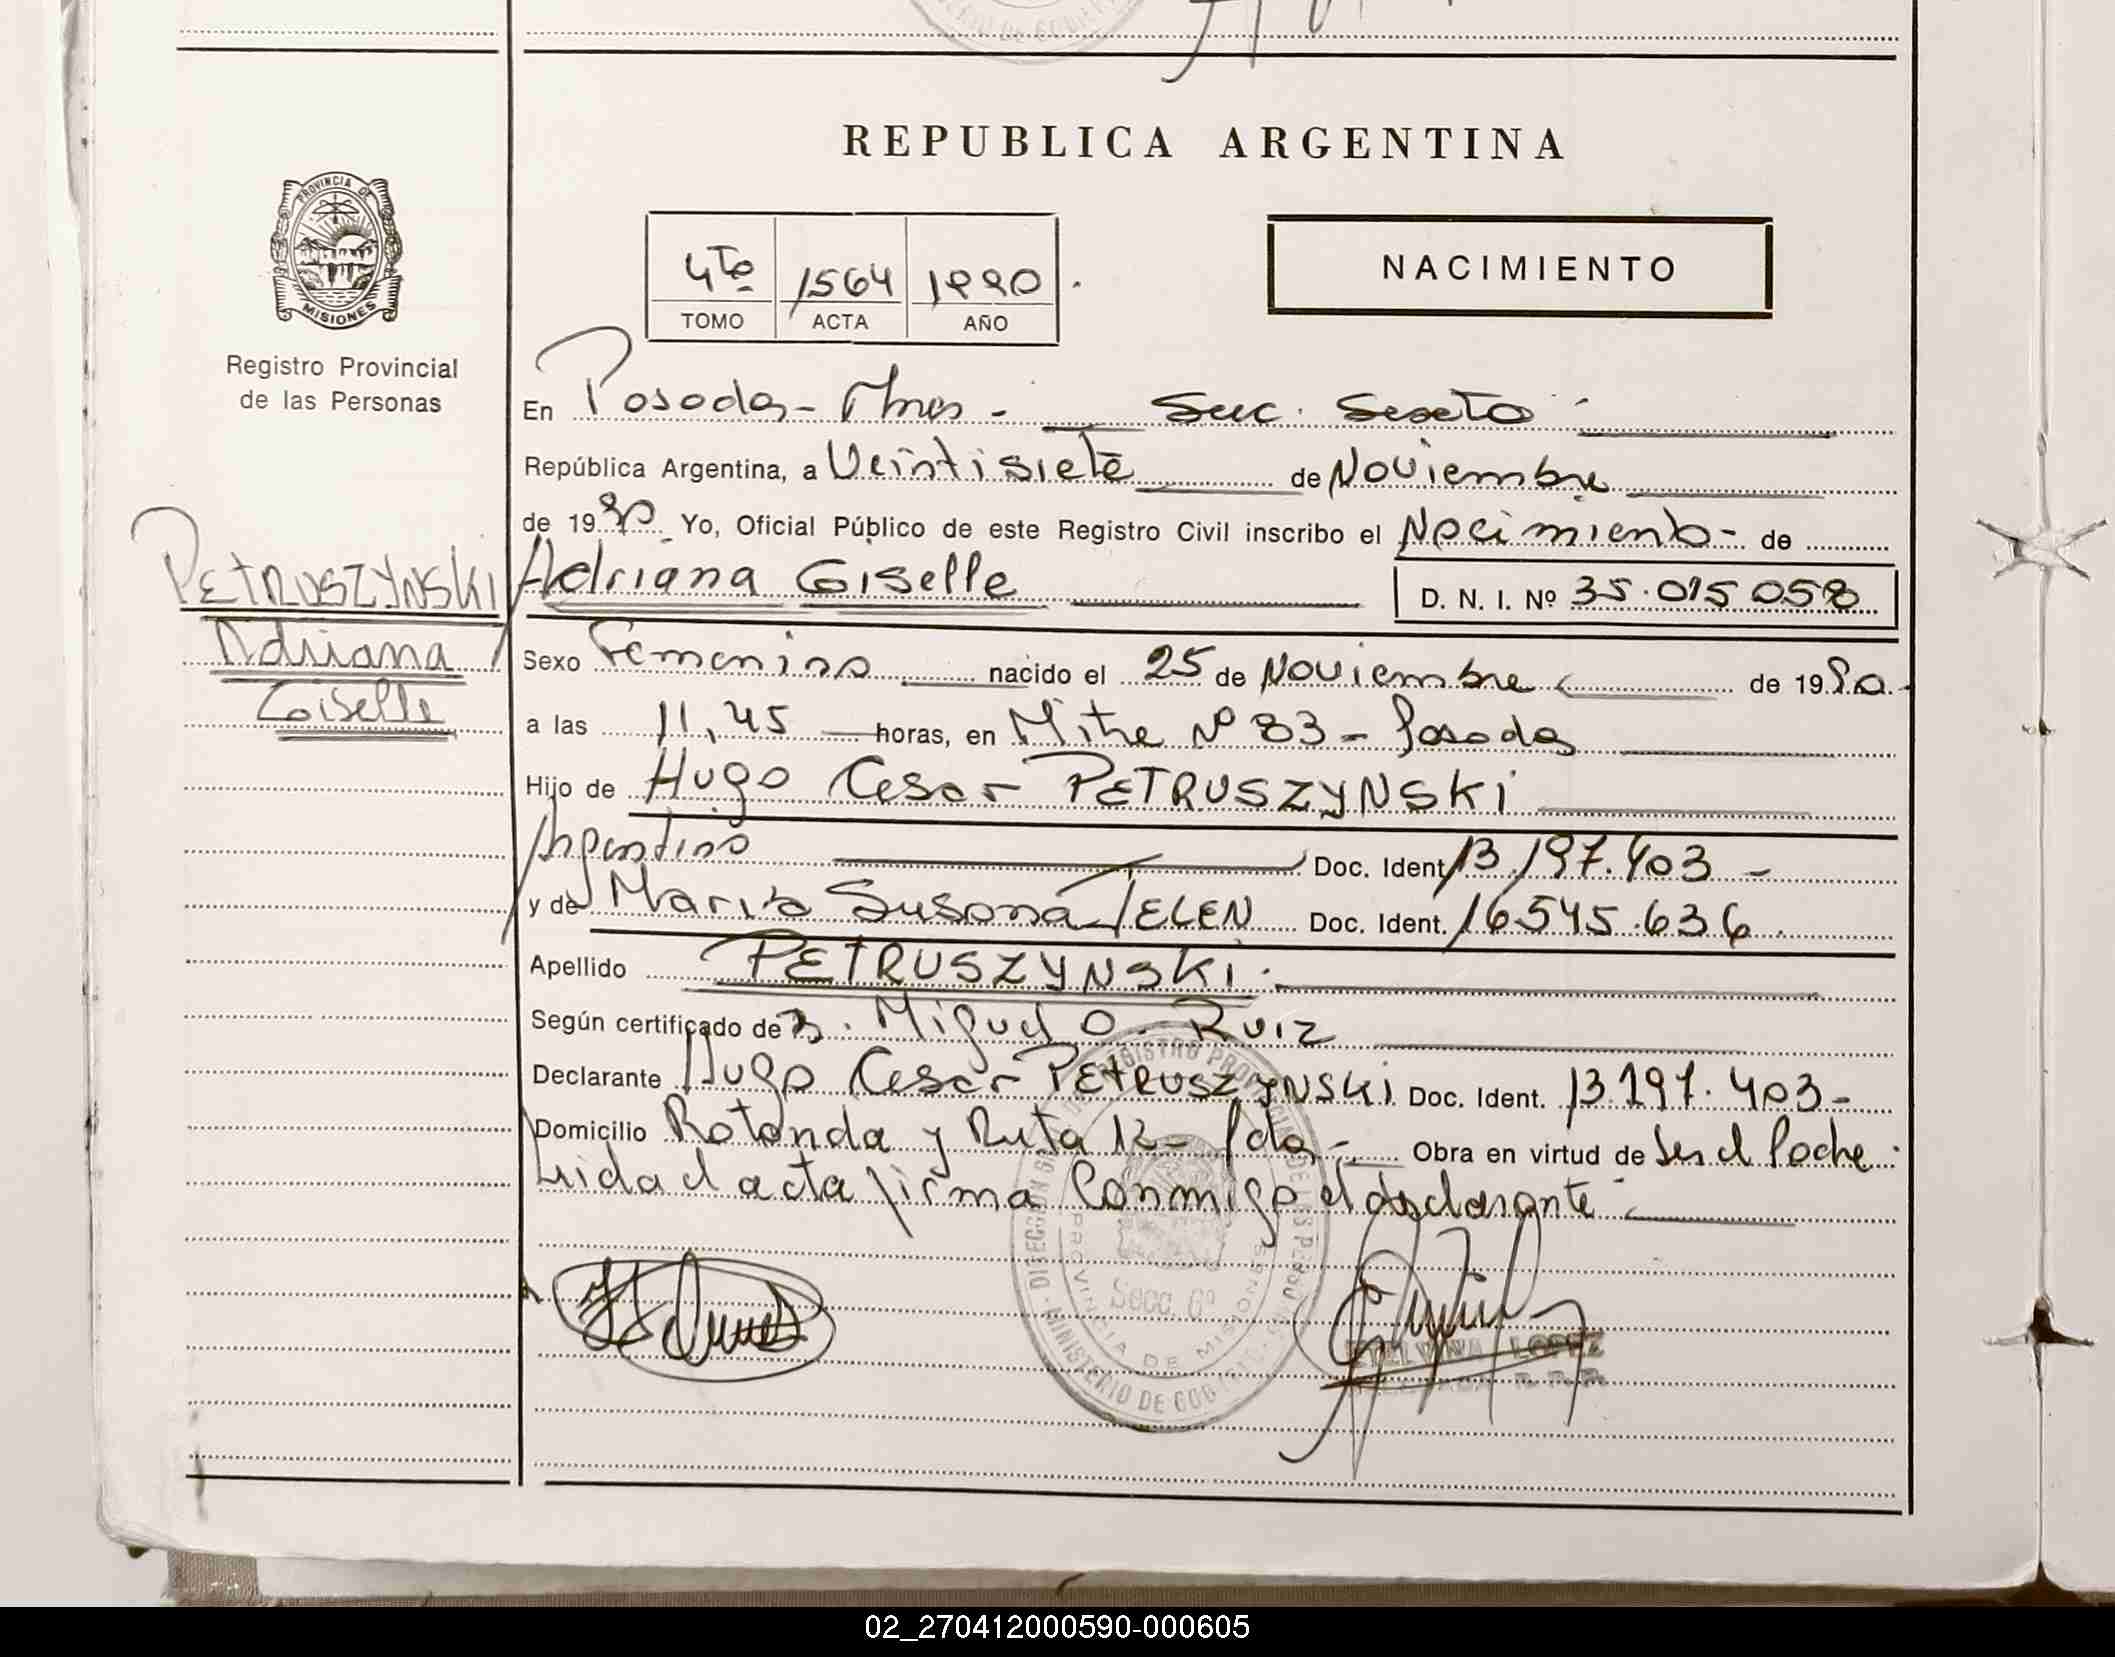 REPUBLICA ARGENTINA
PROVINCIA DE
MISIONES
Registro Provincial
de las Personas
4to 1564 1990
TOMO ACTA AÑO
NACIMIENTO
En Posadas - Mnes - Secc. Sexta
República Argentina, a Veintisiete de Noviembre
de 1990 Yo, Oficial Público de este Registro Civil inscribo el Nacimiento - de
PETRUSZYNSKI
Adriana
Giselle
Adriana Giselle
D. N. I. Nº 35.015.058
Sexo Femenino nacido el 25 de Noviembre de 1990.
a las 11,45 horas, en Mitre Nº 83 - Posadas
Hijo de Hugo Cesar PETRUSZYNSKI
Argentino Doc. Ident. 13.197.403 -
y de Maria Susana TELEN Doc. Ident. 16.545.636
Apellido PETRUSZYNSKI.
Según certificado de Miguel O. Ruiz
Declarante Hugo Cesar PETRUSZYNSKI Doc. Ident. 13.197.403 -
Domicilio Rotonda y Ruta 12 - Pdas - Obra en virtud de Ser el Padre.
Leida el acta firma Conmigo el declarante
DIRECCION REGISTRO PROVINCIAL DE LAS PERSONAS
MINISTERIO DE GOB
PROVINCIA DE MISIONES
Secc. 6º
ETELVINA LOPEZ
02_270412000590-000605